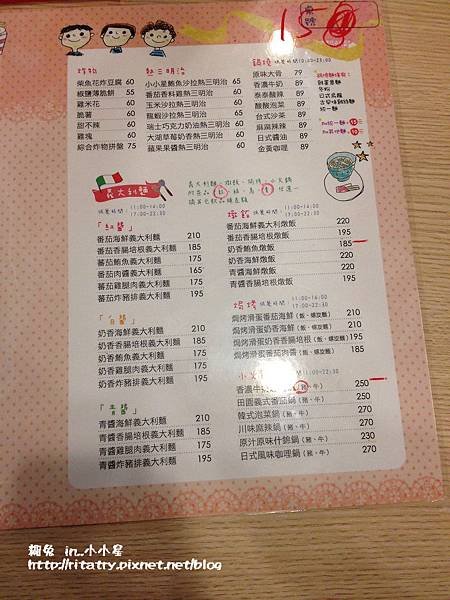 桌號
15
炸物
柴魚花炸豆腐 60
椒鹽薄脆餅 55
雞米花 60
脆薯 60
甜不辣 60
雞塊 60
綜合炸物拼盤 75
熱三明治
小小星鮪魚沙拉熱三明治 65
番茄香料雞熱三明治 60
玉米沙拉熱三明治 60
龍蝦沙拉熱三明治 65
瑞士巧克力奶油熱三明治 60
大湖草莓奶香熱三明治 60
蘋果果醬熱三明治 60
鍋燒 供餐時間10:00-23:00
原味大骨 79
香濃牛奶 89
泰泰酸辣 89
酸酸泡菜 89
台式沙茶 89
麻麻辣辣 89
日式醬油 89
金黃咖哩 89
鍋燒麵條有:
雞蛋意麵
冬粉
日式烏龍
統一麵
義大利麵
供餐時間: 11:00-14:00
17:00-22:30
「紅醬」
番茄海鮮義大利麵 210
番茄香腸培根義大利麵 185
番茄鮪魚義大利麵 175
番茄肉醬義大利麵 165
蕃茄雞腿肉義大利麵 175
蕃茄炸豬排義大利麵 195
「白醬」
奶香海鮮義大利麵 210
奶香香腸培根義大利麵 185
奶香鮪魚義大利麵 175
奶香雞腿肉義大利麵 175
奶香炸豬排義大利麵 195
「青醬」
青醬海鮮義大利麵 210
青醬香腸培根義大利麵 185
青醬鮪魚義大利麵 175
青醬雞腿肉義大利麵 175
青醬炸豬排義大利麵 195
燉飯 供餐時間: 11:00-14:00
17:00-22:30
番茄海鮮燉飯 220
番茄香腸培根燉飯 195
奶香鮪魚燉飯 185
奶香海鮮燉飯 220
青醬海鮮燉飯 220
青醬香腸培根燉飯 195
焗烤 供餐時間: 11:00-14:00
17:00-22:30
焗烤滑蛋番茄海鮮(飯、螺旋麵) 210
焗烤滑蛋奶香海鮮(飯、螺旋麵) 210
焗烤滑蛋奶香香腸培根(飯、螺旋麵) 195
焗烤滑蛋番茄肉醬(飯、螺旋麵) 185
小火鍋
香濃牛奶鍋(豬、牛) 250
田園義式番茄鍋(豬、牛) 250
韓式泡菜鍋(豬、牛) 250
川味麻辣鍋(豬、牛) 270
原汁原味什錦鍋(豬、牛) 230
日式風味咖哩鍋(豬、牛) 270
糊兔 in_小小星
http://ritatry.pixnet.net/blog